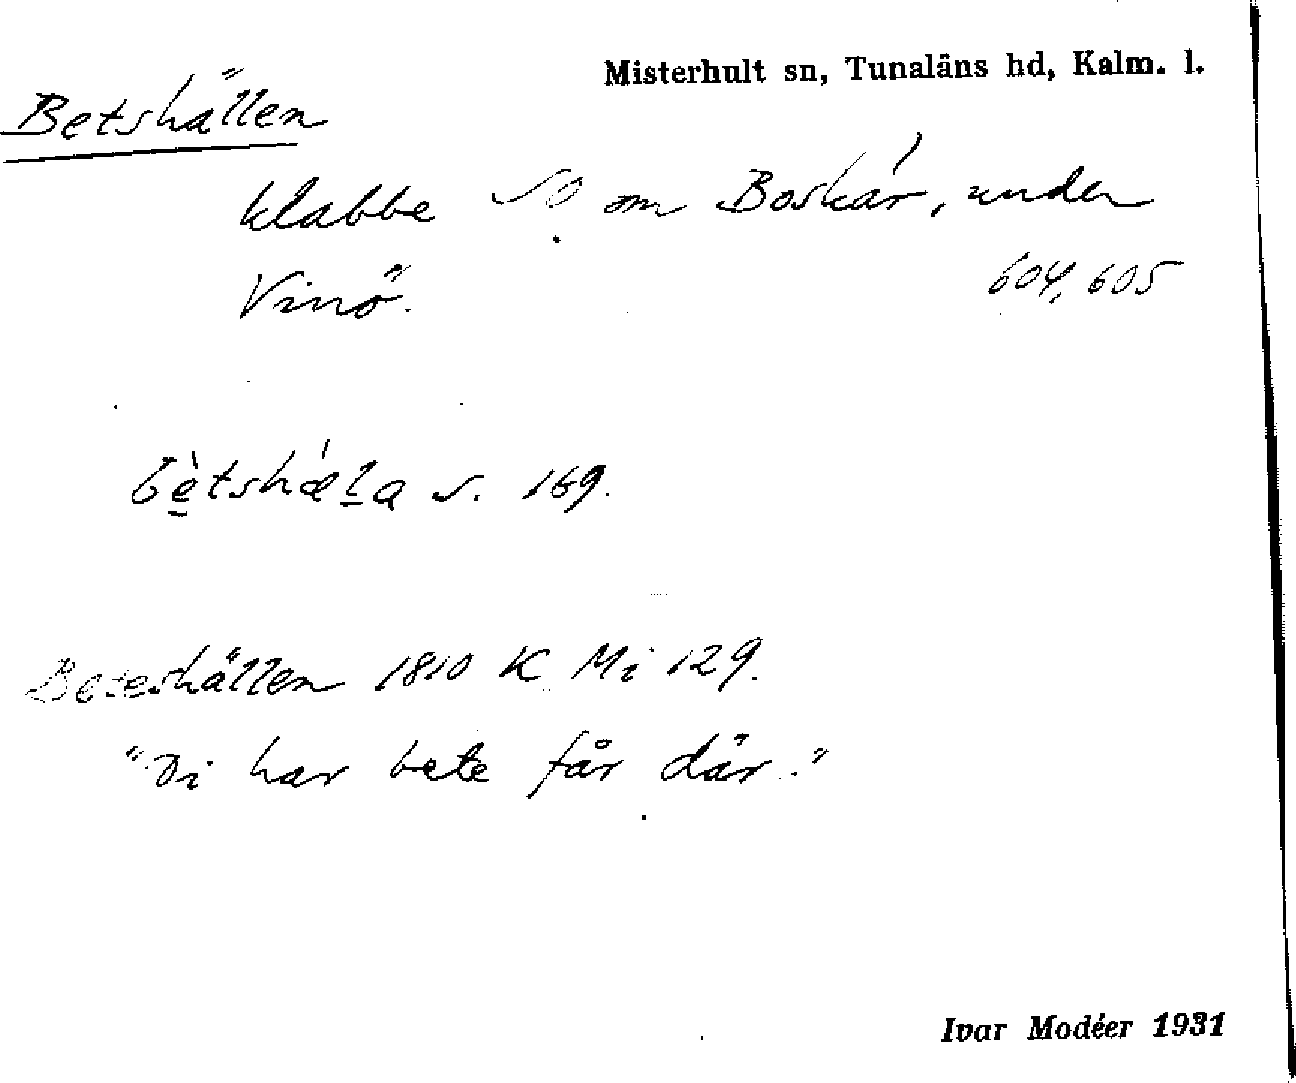 Misterhult sn, Tunaläns hd, Kalm. l.
Betshällen
klabbe SO om Boskär, under
Vinö.
604, 605
bètshæ´l̠a s. 169.
Beteshällen 1810 K Mi 129.
"Di har bete får där."
Ivar Modéer 1931